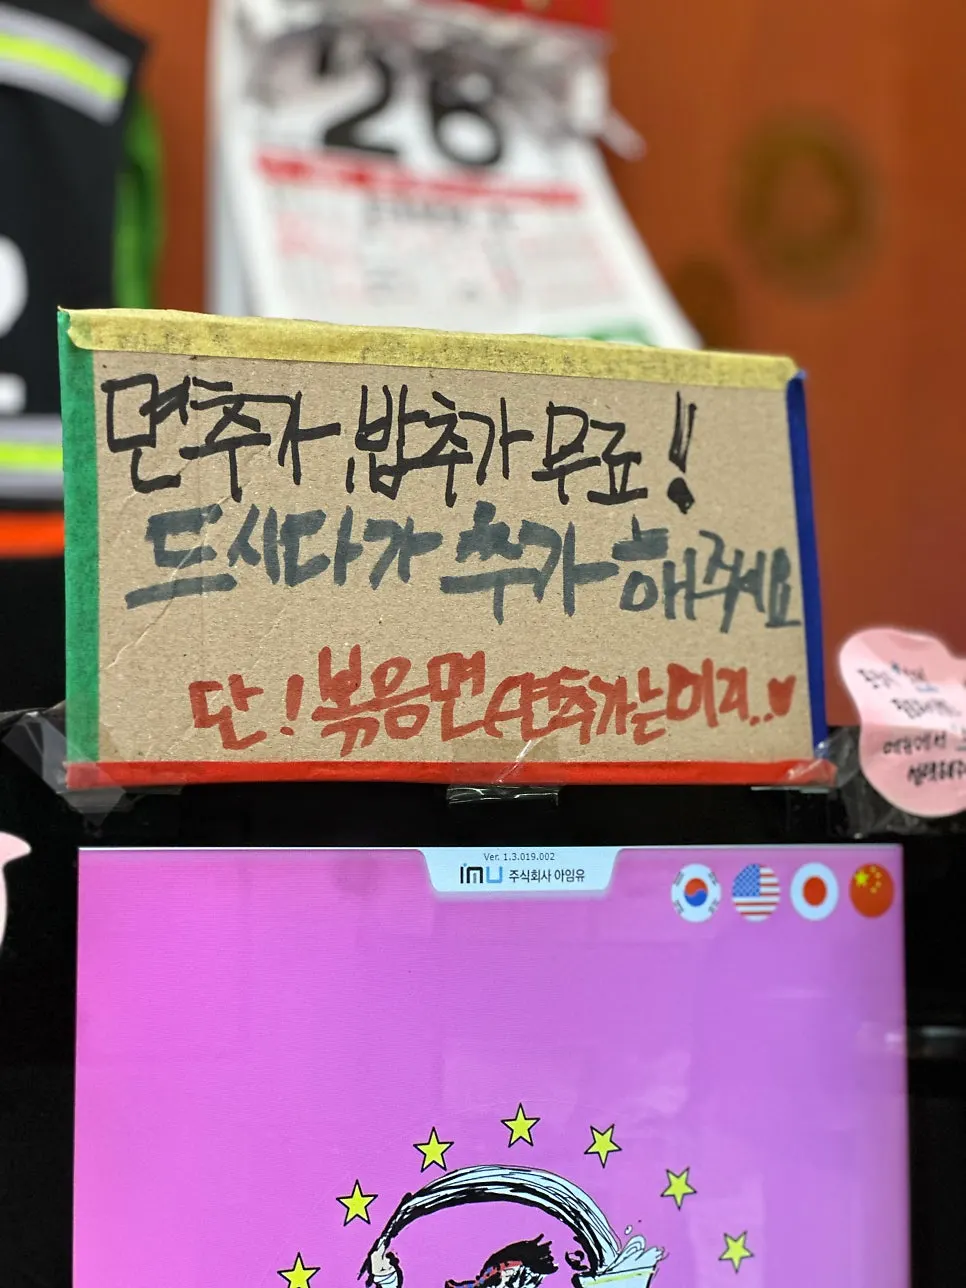 26
면추가 밥추가 무료!!
드시다가 추가 해주세요
단! 볶음면(면추가는미리..♥
Ver. 1.3.019.002
imu 주식회사 아임유